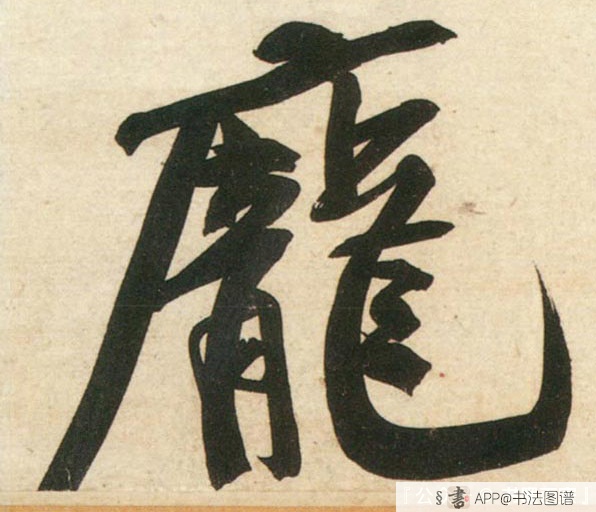 龐
公
§ 書 APP@书法图谱